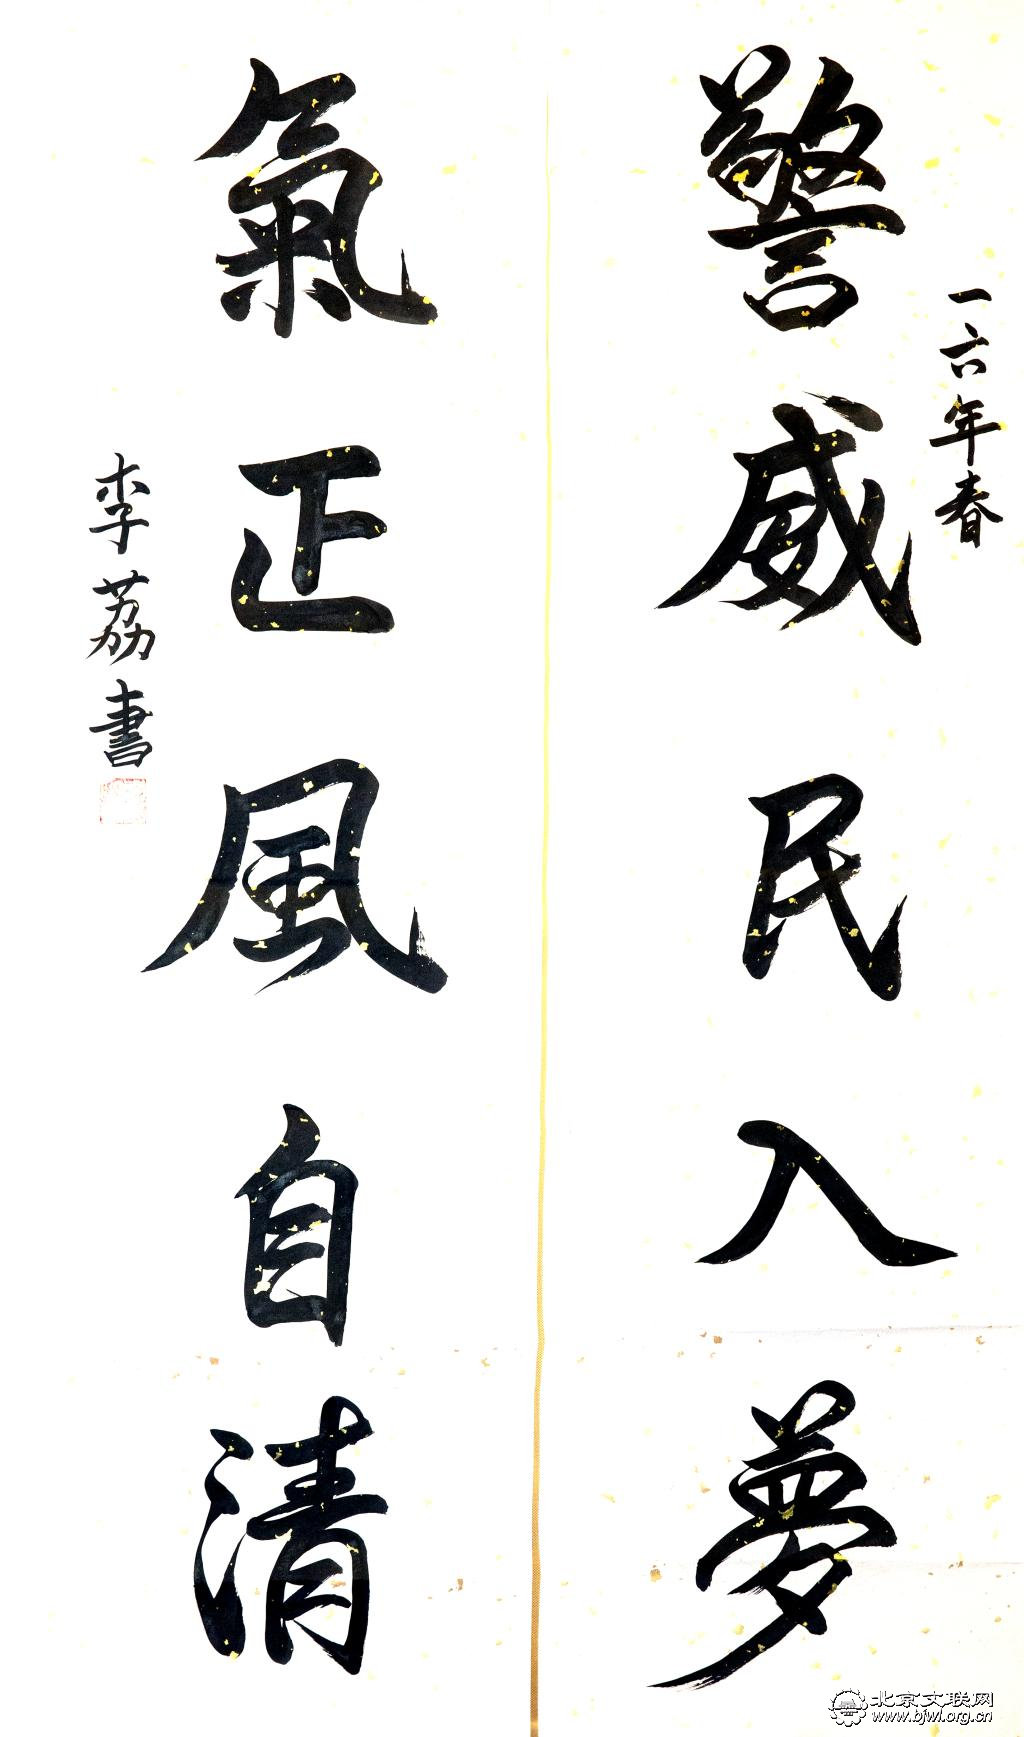 一六年春
警威民入夢
氣正風自清
李荔書
北京文联网
www.bjwl.org.cn